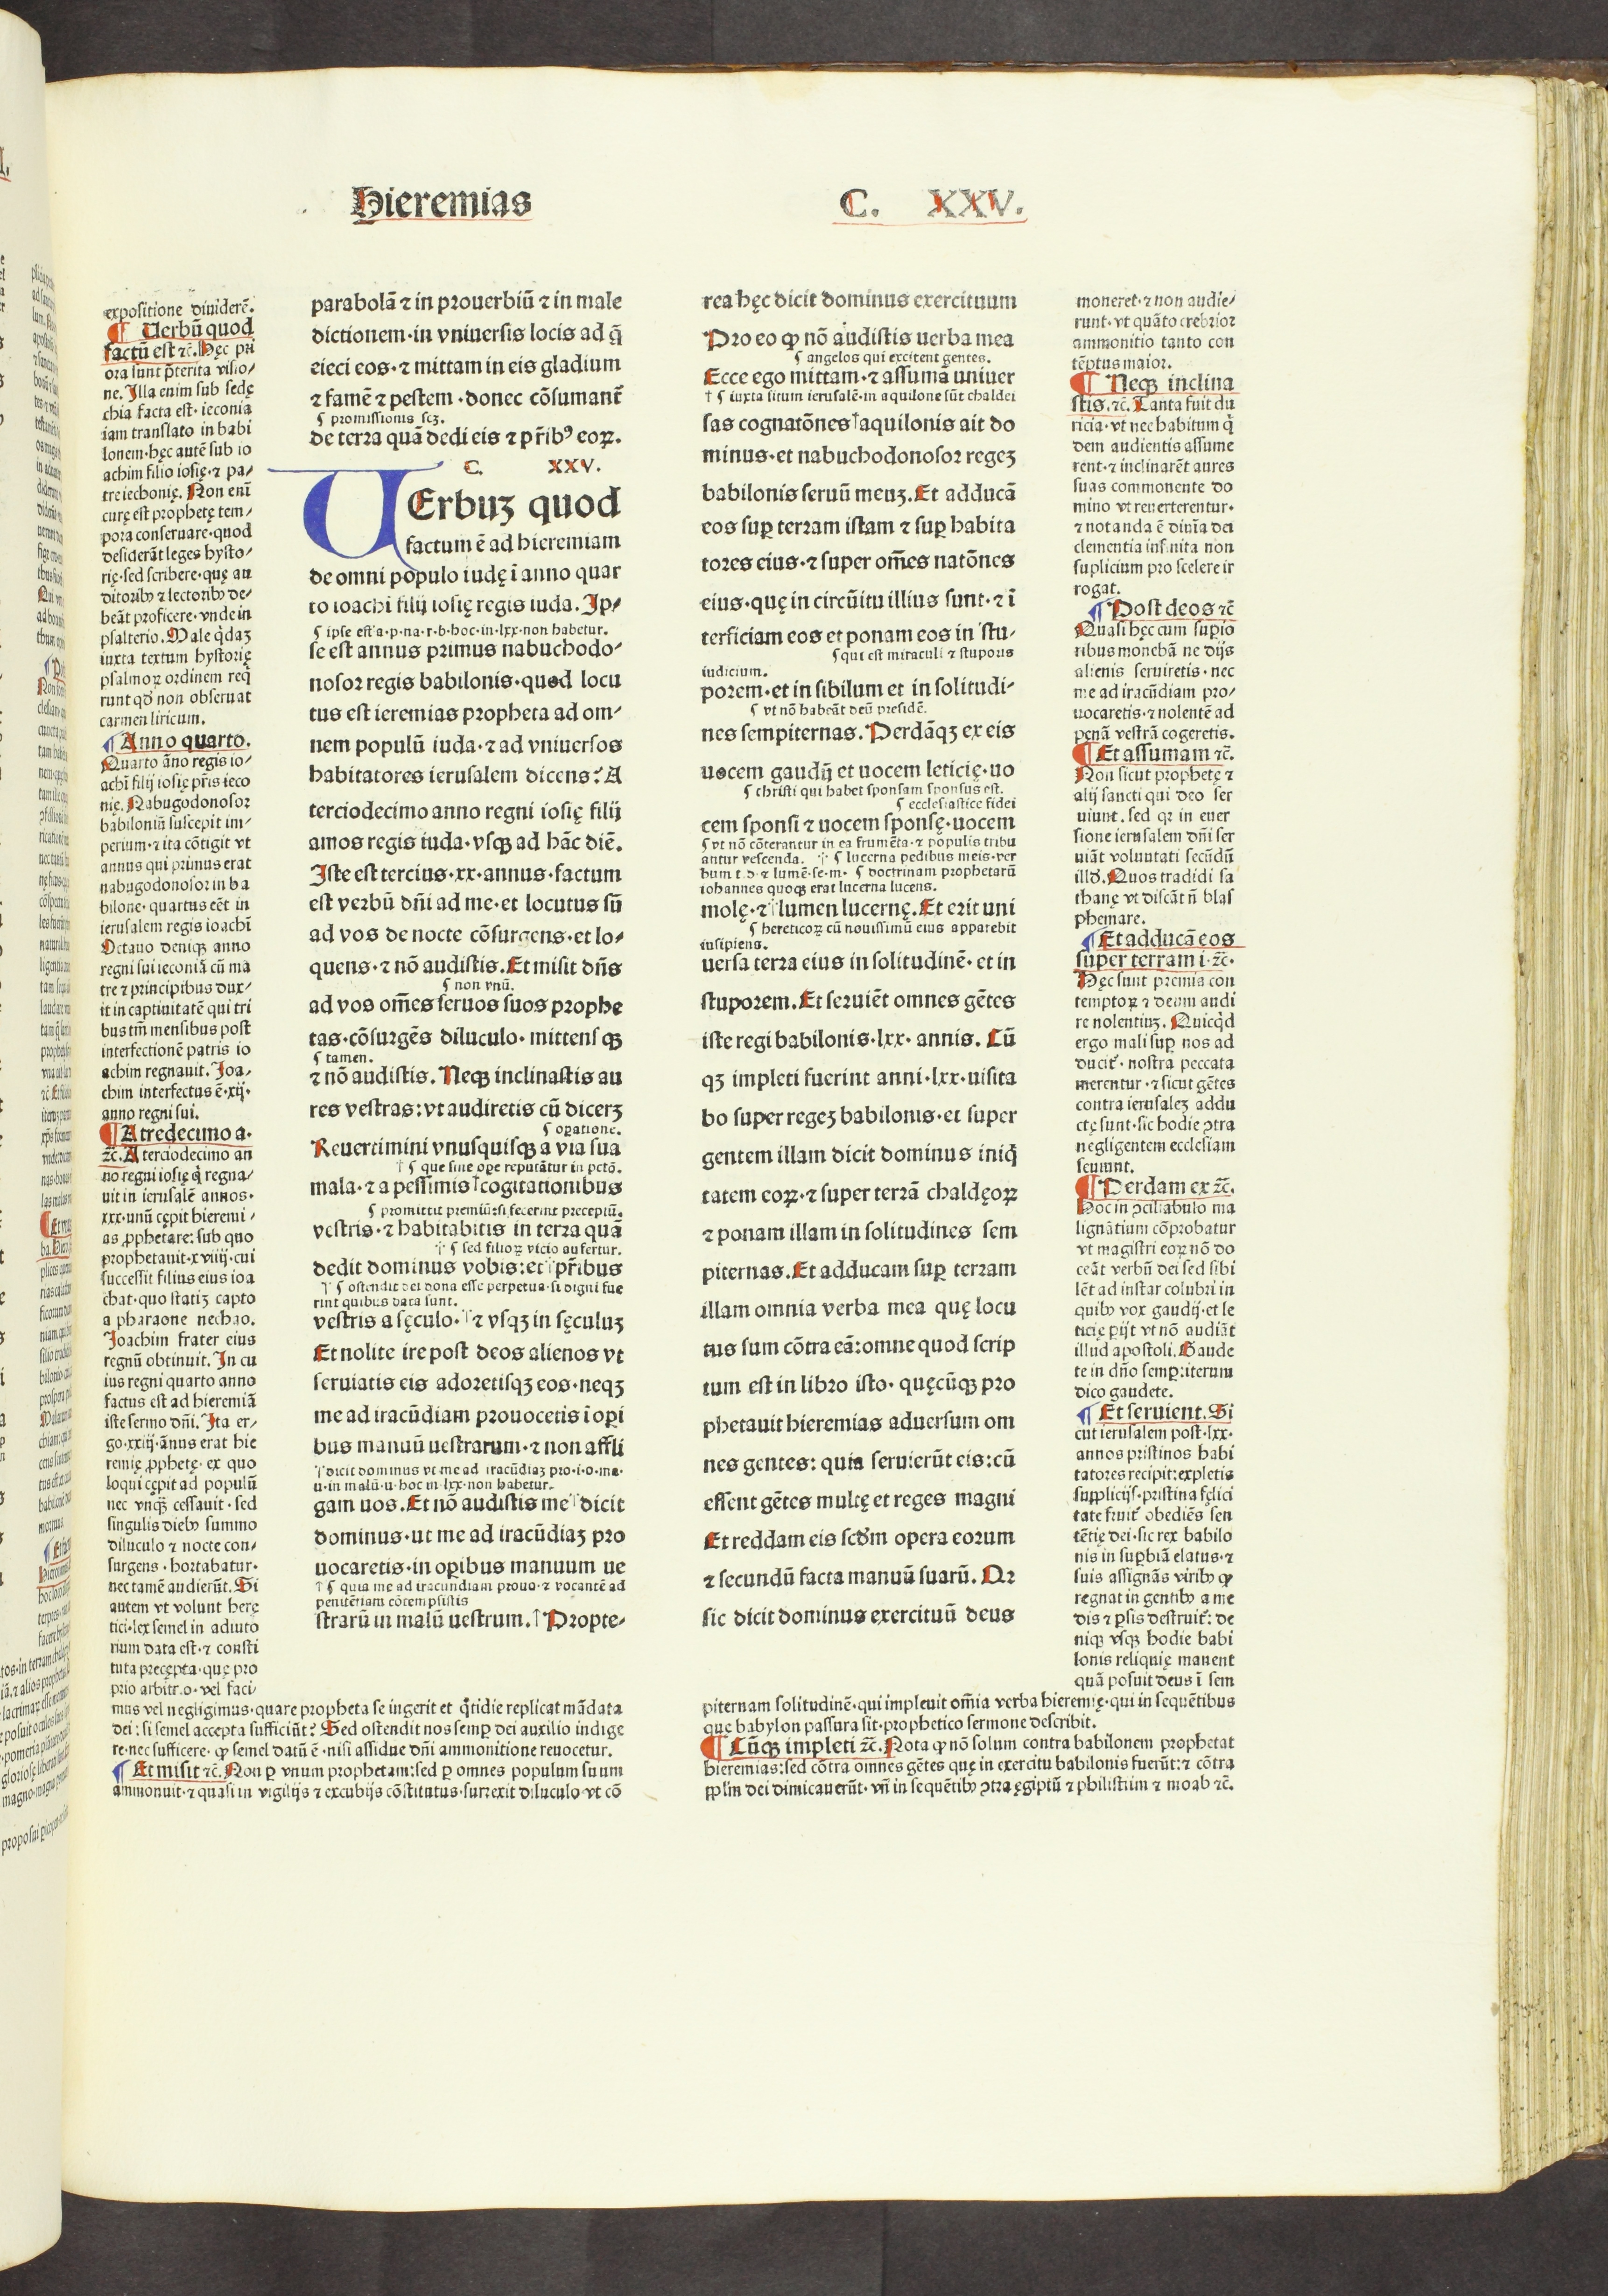 Hieremias
C. XXV.
expositione diuiderē.
¶ Uerbū quod
factū est ⁊c. Hęc pri
ora sunt p̄terita visio/
ne. Illa enim sub sedę
chia facta est· ieconia
iam translato in babi
lonem· hęc autē sub io
achim filio iosię· ⁊ pa/
tre iechonię. Non enī
curę est prophetę tem/
pora conseruare· quod
desiderāt leges hysto/
rię· sed scribere· quę au
ditoribꝰ ⁊ lectoribꝰ de/
beāt proficere· vnde in
psalterio. Male q̄daʒ
iuxta textum hystorię
psalmoꝝ ordinem req̄
runt qd̄ non obseruat
carmen liricum.
¶ Anno quarto.
Quarto āno regis io/
achī filij iosię pr̄is ieco
nię. Nabugodonosor
babiloniū suscepit im/
perium· ⁊ ita cōtigit vt
annus qui primus erat
nabugodonosor in ba
bilone· quartus eēt in
ierusalem regis ioachī
Octauo deniqꝫ anno
regni sui ieconiā cū ma
tre ⁊ principibus dux/
it in captiuitatē qui tri
bus tm̄ mensibus post
interfectionē patris io
achim regnauit. Ioa/
chim interfectus ē· xij·
anno regni sui.
¶ A tredecimo a·
⁊c. A terciodecimo an
no regni iosię q̄ regna/
uit in ierusalē annos·
xxx· unū cępit hieremi/
as ꝓphetare: sub quo
prophetauit· xviiij· cui
successit filius eius ioa
chat· quo statiʒ capto
a pharaone nechao.
Ioachim frater eius
regnū obtinuit. In cu
ius regni quarto anno
factus est ad hieremiā
iste sermo dn̄i. Ita er/
go· xxiij· ānus erat hie
remię ꝓphetę· ex quo
loqui cępit ad populū
nec vnqꝫ cessauit· sed
singulis diebꝰ summo
diluculo ⁊ nocte con/
surgens· hortabatur·
nec tamē audierūt. Si
autem vt volunt herę
tici· lex semel in adiuto
rium data est· ⁊ consti
tuta precępta· que pro
prio arbitrio· vel faci
mus vel negligimus· quare propheta se ingerit et q̄tidie replicat mādata
dei: si semel accepta sufficiūt? Sed ostendit nos semꝑ dei auxilio indige
re· nec sufficere· ꝙ semel datū ē· nisi assidue dn̄i ammonitione reuocetur.
¶ Et misit ⁊c. Non ꝑ vnum prophetam: sed ꝑ omnes populum suum
ammonuit· ⁊ quasi in vigilijs ⁊ excubijs cōstitutus· surrexit diluculo· vt cō
parabolā ⁊ in prouerbiū ⁊ in male
dictionem· in vniuersis locis ad q̄
eieci eos· ⁊ mittam in eis gladium
⁊ famē ⁊ pestem· donec cōsumant̄
¶ promissionis scʒ.
de terra quā dedi eis ⁊ pr̄ibꝰ eoꝝ.
C. XXV.
UErbuʒ quod
factum ē ad hieremiam
de omni populo iudę ī anno quar
to ioachī filij iosię regis iuda. Ip/
¶ ipse est· a· p· na· r· b· hoc· in· lxx· non habetur.
se est annus primus nabuchodo/
nosor regis babilonis· quod locu
tus est ieremias propheta ad om/
nem populū iuda· ⁊ ad vniuersos
habitatores ierusalem dicens: A
terciodecimo anno regni iosię filij
amos regis iuda· vsqꝫ ad hāc diē.
Iste est tercius· xx· annus· factum
est verbū dn̄i ad me· et locutus sū
ad vos de nocte cōsurgens· et lo/
quens· ⁊ nō audistis. Et misit dn̄s
¶ non vnū.
ad vos om̄es seruos suos prophe
tas· cōsurgēs diluculo· mittensqꝫ
¶ tamen.
⁊ nō audistis. Neqꝫ inclinastis au
res vestras: vt audiretis cū dicerʒ
¶ oꝑatione.
Reuertimini vnusquisqꝫ a via sua
† ¶ que sine oꝑe reputātur in pctō.
mala· ⁊ a pessimis† cogitationibus
¶ promittit premiū: si fecerint preceptū.
vestris· ⁊ habitabitis in terra quā
† ¶ sed filioꝝ vicio aufertur.
dedit dominus vobis: et† pr̄ibus
† ¶ ostendit dei dona esse perpetua· si digni fue
rint quibus data sunt.
vestris a sęculo·† ⁊ vsqʒ in sęculuʒ
Et nolite ire post deos alienos vt
seruiatis eis adoretisqʒ eos· neqʒ
me ad iracūdiam prouocetis ī oꝑi
bus manuū uestrarum· ⁊ non affli
† dicit dominus vt me ad iracūdiaʒ pro· i· o· ma·
u· in malū· u· hoc in· lxx· non habetur.
gam uos. Et nō audistis me† dicit
dominus· ut me ad iracūdiaʒ pro
uocaretis· in oꝑibus manuum ue
† ¶ quia me ad iracundiam prouo· ⁊ vocantē ad
penitētiam cōtempsistis
strarū in malū uestrum.† Propte/
rea hęc dicit dominus exercituum
Pro eo ꝙ nō audistis uerba mea
¶ angelos qui excitent gentes.
Ecce ego mittam· ⁊ assumā uniuer
† ¶ iuxta situm ierusalē· in aquilone sūt chaldei
sas cognatōnes† aquilonis ait do
minus· et nabuchodonosor regeʒ
babilonis seruū meuʒ. Et adducā
eos suꝑ terram istam ⁊ suꝑ habita
tores eius· ⁊ super om̄es natōnes
eius· quę in circūitu illius sunt· ⁊ ī
terficiam eos et ponam eos in stu/
¶ qui est miraculi ⁊ stuporis
iudicium.
porem· et in sibilum et in solitudi/
¶ vt nō habeāt deū presidē.
nes sempiternas. Perdāqʒ ex eis
uocem gaudij et uocem leticię· uo
¶ christi qui habet sponsam sponsus est.
¶ ecclesiastice fidei
cem sponsi ⁊ uocem sponsę· uocem
¶ vt nō cōterantur in ea frumēta· ⁊ populis tribu
antur vescenda. † ¶ lucerna pedibus meis· ver
bum t· d· ⁊ lumē· se· m· ¶ doctrinam prophetarū
iohannes quoqꝫ erat lucerna lucens.
molę· ⁊† lumen lucernę. Et erit uni
¶ hereticoꝝ cū nouissimū eius apparebit
insipiens.
uersa terra eius in solitudinē· et in
stuporem. Et seruiēt omnes gētes
iste regi babilonis· lxx· annis. Cū
qʒ impleti fuerint anni· lxx· uisita
bo super regeʒ babilonis· et super
gentem illam dicit dominus iniq̄
tatem eoꝝ· ⁊ super terrā chaldęoꝝ
⁊ ponam illam in solitudines sem
piternas. Et adducam suꝑ terram
illam omnia verba mea quę locu
tus sum cōtra eā: omne quod scrip
tum est in libro isto· quęcūqꝫ pro
phetauit hieremias aduersum om
nes gentes: quia seruierūt eis: cū
essent gētes multę et reges magni
Et reddam eis scd̄m opera eorum
⁊ secundū facta manuū suarū. Qꝛ
sic dicit dominus exercituū deus
moneret· ⁊ non audie/
runt· vt quāto crebrior
ammonitio tanto con
tēptus maior.
¶ Neqꝫ inclina
stis. ⁊c. Tanta fuit du
ricia· vt nec habitum q̄
dem audientis assume
rent· ⁊ inclinarēt aures
suas commonente do
mino vt reuerterentur·
⁊ notanda ē diuīa dei
clementia infinita non
suplicium pro scelere ir
rogat.
¶ Post deos ⁊c
Quasi hęc cum suꝑio
ribus monebā ne dijs
alienis seruiretis· nec
me ad iracūdiam pro/
uocaretis· ⁊ nolentē ad
penā vestrā cogeretis.
¶ Et assumam ⁊c.
Non sicut prophetę ⁊
alij sancti qui deo ser
uiunt. sed qꝛ in euer
sione ierusalem dn̄i ser
uiāt voluntati secūdū
illd̄. Quos tradidi sa
thanę vt discāt n̄ blas
phemare.
¶ Et adducā eos
super terram i· ⁊c·
Hęc sunt premia con
temptoꝝ ⁊ deum audi
re nolentiuʒ. Quicq̄d
ergo mali suꝑ nos ad
ducit̄· nostra peccata
merentur· ⁊ sicut gētes
contra ierusaleʒ addu
ctę sunt· sic hodie ꝯtra
negligentem ecclesiam
seuiunt.
¶ Perdam ex ⁊c.
Hoc in ꝯciliabulo ma
lignātium cōprobatur
vt magistri eoꝝ nō do
ceāt verbū dei sed sibi
lēt ad instar colubri in
quibꝰ vox gaudij· et le
ticię ꝑijt vt nō audiāt
illud apostoli. Gaude
te in dn̄o semꝑ: iterum
dico gaudete.
¶ Et seruient. Si
cut ierusalem post· lxx·
annos pristinos habi
tatores recipit: expletis
supplicijs· pristina fęlici
tate fruit̄ obediēs sen
tētię dei· sic rex babilo
nis in suꝑbiā elatus· ⁊
suis assignās viribꝰ ꝙ
regnat in gentibꝰ a me
dis ⁊ ꝑsis destruit̄: de
niqꝫ vsqꝫ hodie babi
lonis reliquię manent
quā posuit deus ī sem
piternam solitudinē· qui impleuit om̄ia verba hieremię· qui in sequētibus
que babylon passura sit· prophetico sermone describit.
¶ Cūqꝫ impleti ⁊c. Nota ꝙ nō solum contra babilonem prophetat
hieremias: sed cōtra omnes gētes que in exercitu babilonis fuerūt: ⁊ cōtra
ꝓꝑlm̄ dei dimicauerūt· vn̄ in sequētibꝰ ꝯtra ęgiptū ⁊ philistiim ⁊ moab ⁊c.